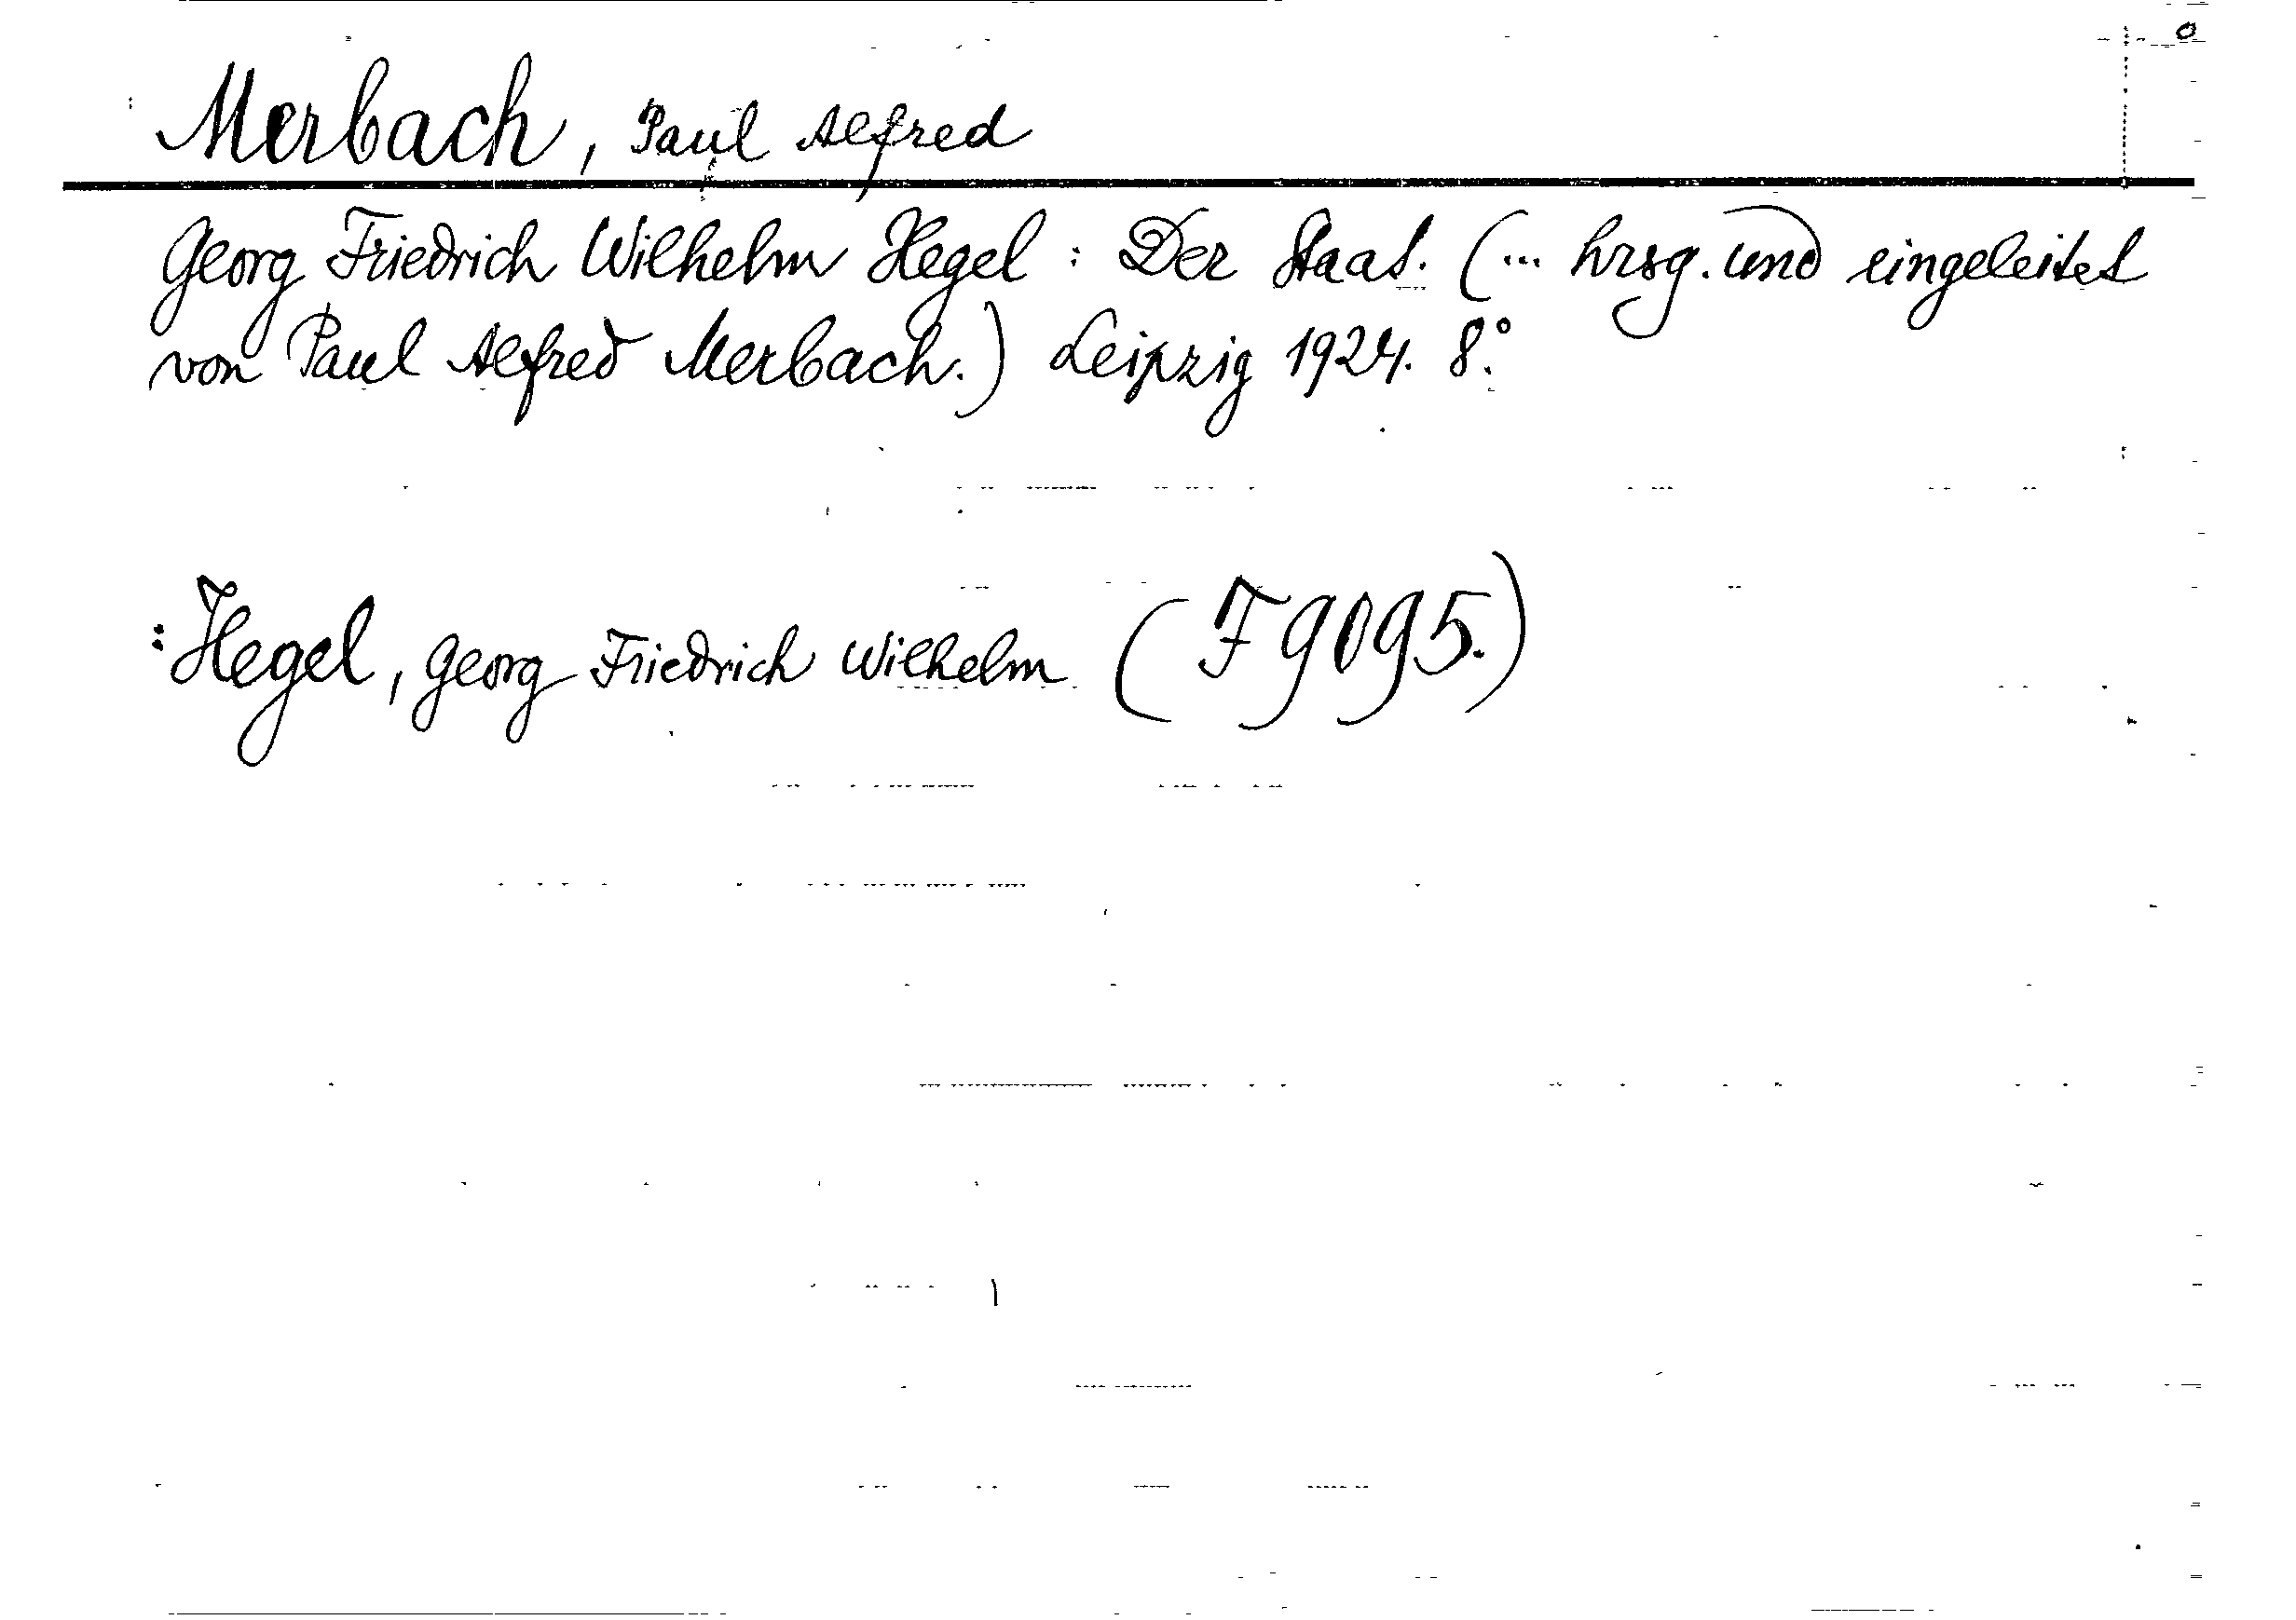 Merbach, Paul Alfred
Georg Friedrich Wilhelm Hegel: Der Staat. (... hrsg. und eingeleitet
von Paul Alfred Merbach.) Leipzig 1924. 8°.
:Hegel, Georg Friedrich Wilhelm (F 9095.)